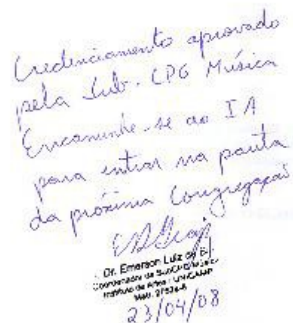 Credenciamento aprovado
pela Sub. CPG Música
Encaminhe-se ao IA
para entrar na pauta
da próxima Congregação
Dr. Emerson Luiz de
Coordenador da SubCPG/Música
Instituto de Artes - UNICAMP
Matr.
23/04/08